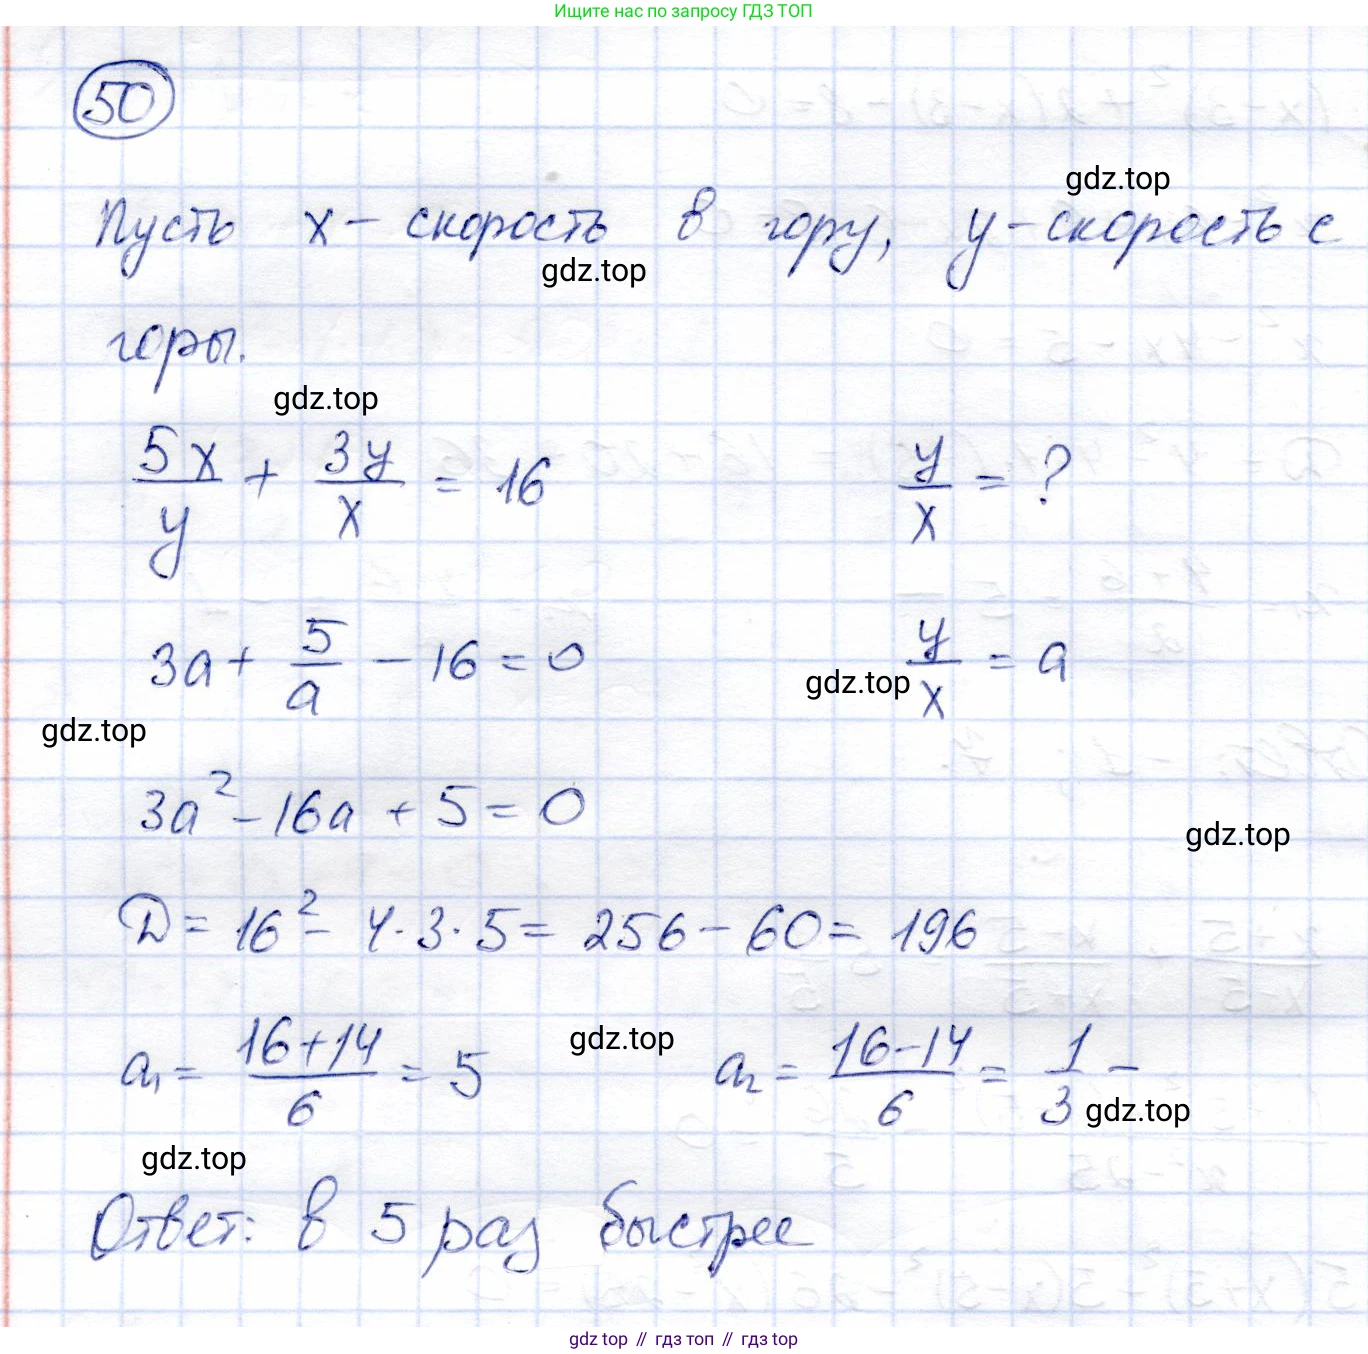 Ищите нас по запросу ГДЗ ТОП
50
gdz.top
Пусть x - скорость в гору, y - скорость с
gdz.top
горы.
gdz.top
5x/y + 3y/x = 16 y/x = ?
3a + 5/a - 16 = 0 y/x = a
gdz.top
gdz.top
3a² - 16a + 5 = 0
gdz.top
D = 16² - 4·3·5 = 256 - 60 = 196
gdz.top
a₁ = (16+14)/6 = 5 a₂ = (16-14)/6 = 1/3 -
gdz.top
gdz.top
Ответ: в 5 раз быстрее
gdz top // гдз топ // gdz top